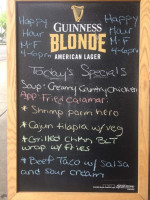 Happy
Hour
M-F
4-6pm
GUINNESS
BLONDE
AMERICAN LAGER
Happy
Hour
M-F
4-6pm
Today's Specials
Soup: Creamy Country Chicken
App: Fried Calamari
* Shrimp parm hero
* Cajun tilapia w/veg
* Grilled Chkn BLT
wrap w/fries
* Beef Taco w/ salsa
and sour cream